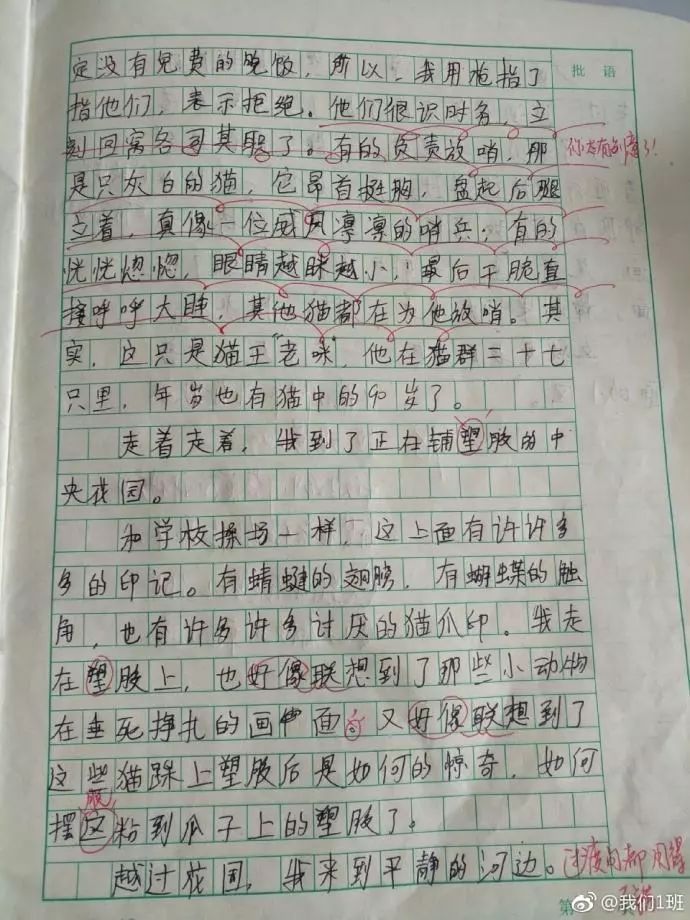 批语
定没有免费的晚饭，所以，我用枪指了
指他们，表示拒绝。他们很识时务，立
刻回窝各司其职了。有的负责放哨，那
是只灰白的猫，它昂首挺胸，盘起后腿
立着，真像一位威风凛凛的哨兵；有的
恍恍惚惚，眼睛越眯越小，最后干脆直
接呼呼大睡，其他猫都在为他放哨。其
实，这只是猫王"老咪"，他在猫群二十七
只里，年岁也有猫中的90岁了。
走着走着，我到了正在铺塑胶的中
央花园。
和学校操场一样，这上面有许许多
多的印记。有蜻蜓的翅膀，有蝴蝶的触
角，也有许多许多讨厌的猫爪印。我走
在塑胶上，也好像联想到了那些小动物
在垂死挣扎的画面。又好像联想到了
这些猫踩上塑胶后是如何的惊奇，如何
摆脱粘到爪子上的塑胶了。
越过花园，我来到平静的河边。
过渡句都用得
第
@我们1班